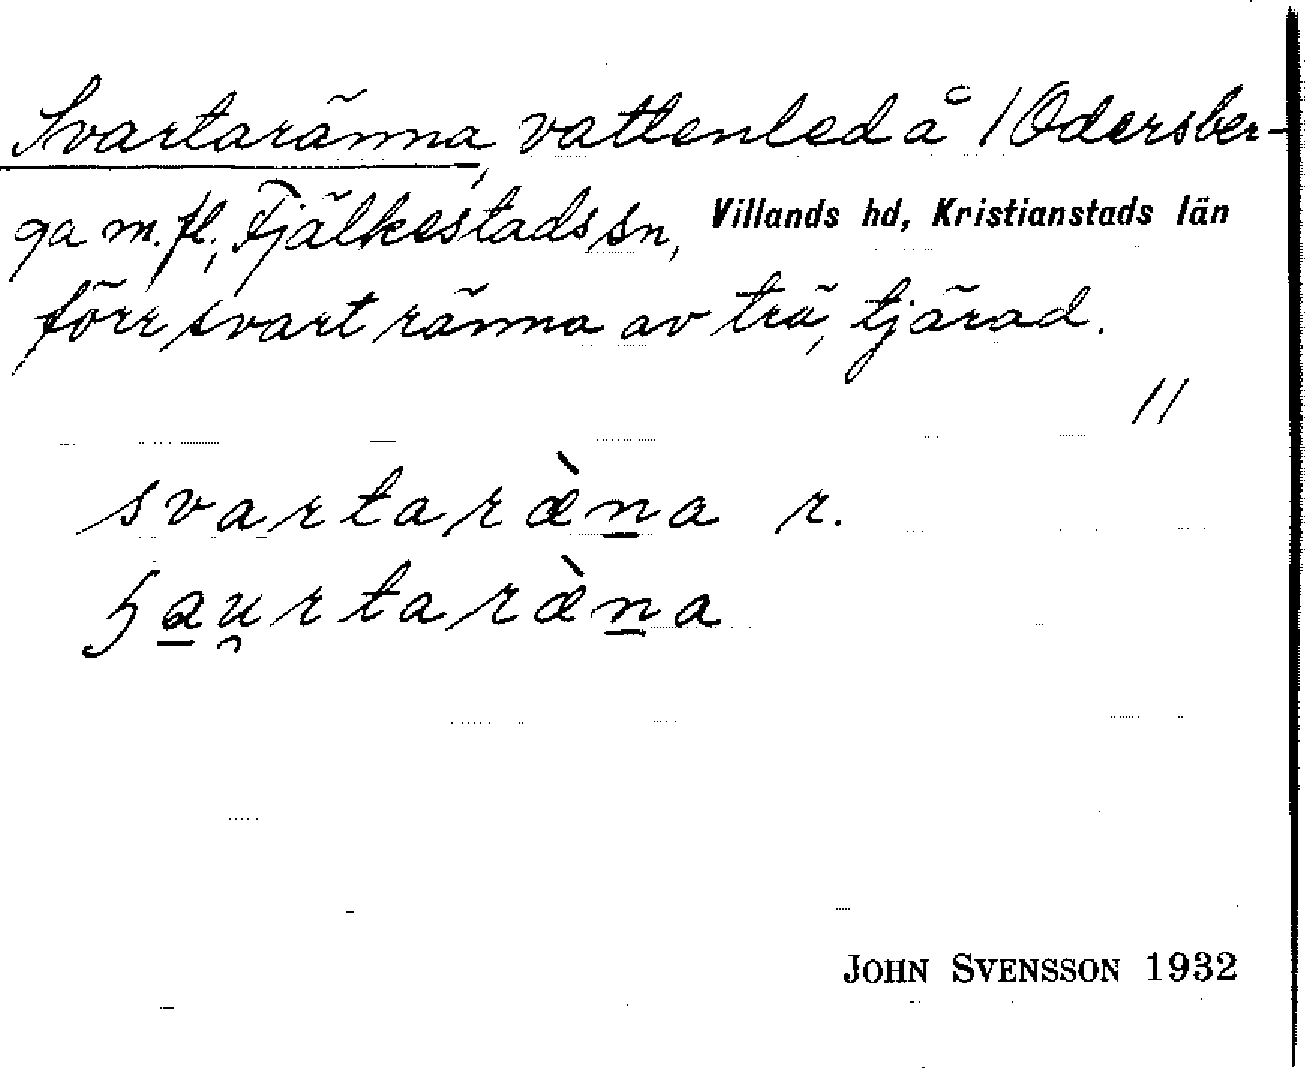 Svartaränna, vattenled å 1 Odersber-
ga m.fl., Fjälkestads sn, Villands hd, Kristianstads län
förr svart ränna av trä, tjärad.
11
svartaræ̀n̲a r.
ɧa̲u̯rtaræ̀n̲a
JOHN SVENSSON 1932